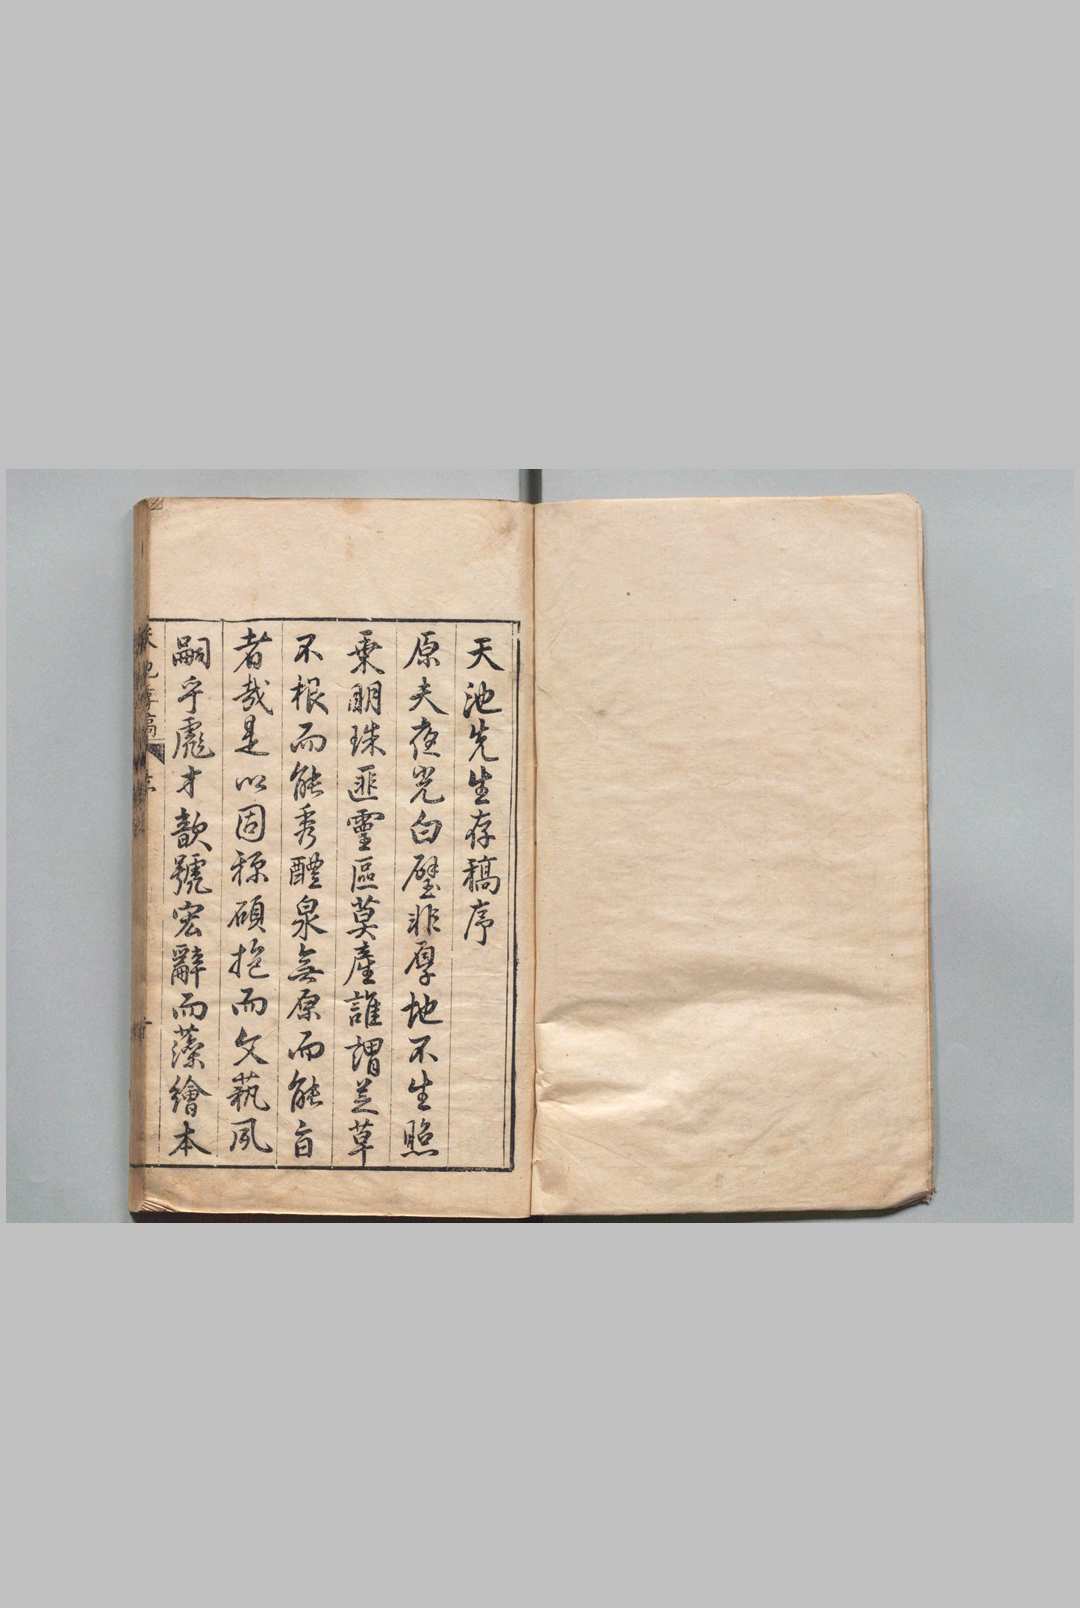 天池先生存稿序
原夫夜光白璧非厚地不生照
乗明珠匪靈區莫產誰謂芝草
不根而能秀醴泉無原而能旨
者哉是以固稱碩抱而文蓺夙
嗣乎彪才歆號宏辭而藻繪本
天池存稿